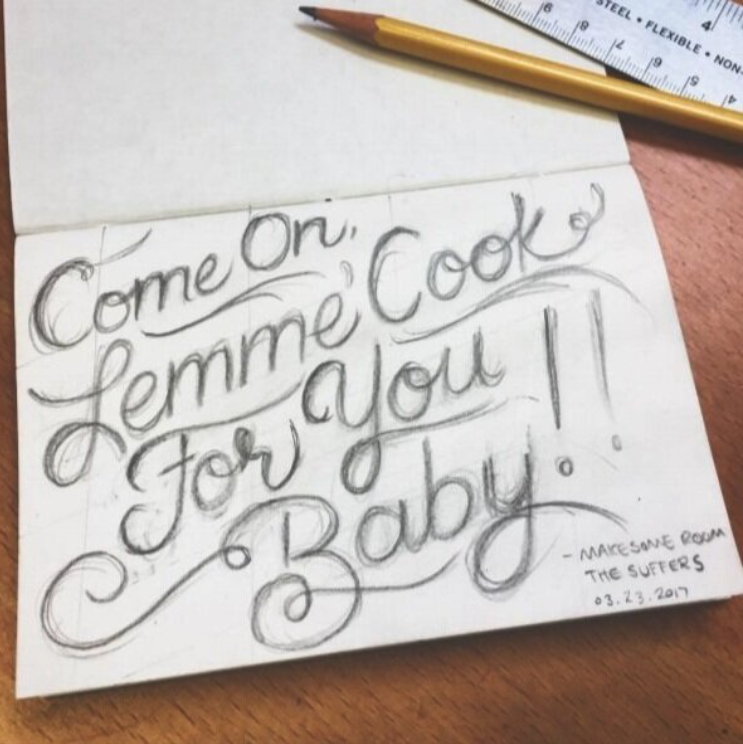 STEEL • FLEXIBLE • NON-
4
9
8
7
6
5
4
Come On,
Lemme Cook
For You !!
Baby
- MAKE SOME ROOM
THE SUFFERS
03.23.2017